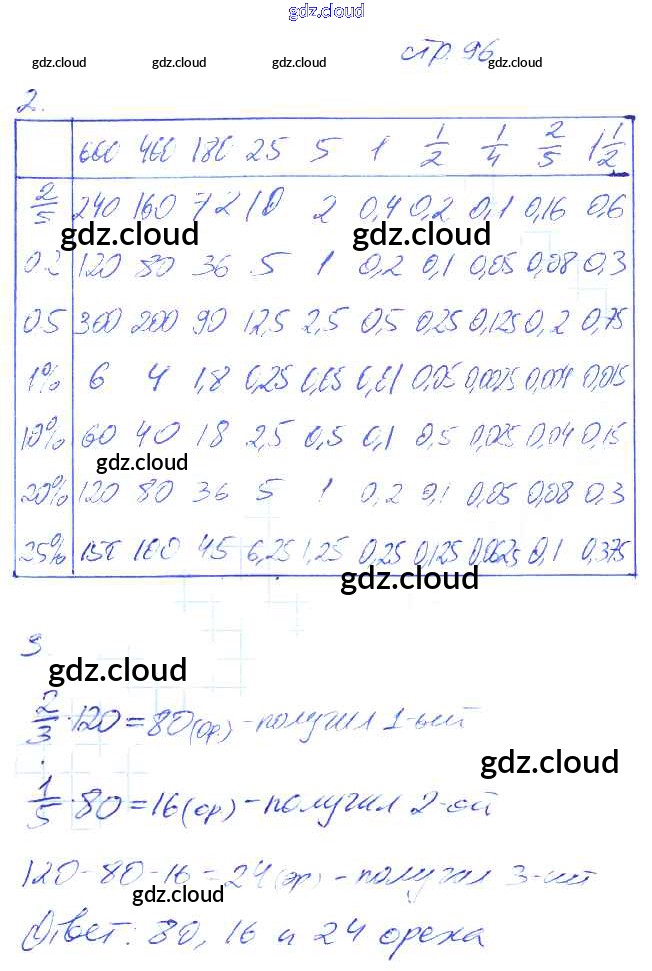 gdz.cloud
стр. 96
gdz.cloud gdz.cloud gdz.cloud gdz.cloud
2.
600 400 180 25 5 1 1/2 1/4 2/5 1 1/2
2/5 240 160 72 10 2 0,4 0,2 0,1 0,16 0,6
gdz.cloud gdz.cloud
0.2 120 80 36 5 1 0,2 0,1 0,05 0,08 0,3
0.5 300 200 90 12,5 2,5 0,5 0,25 0,125 0,2 0,75
1% 6 4 1,8 0,25 0,05 0,01 0,05 0,0025 0,004 0,015
10% 60 40 18 2,5 0,5 0,1 0,5 0,025 0,04 0,15
gdz.cloud gdz.cloud
20% 120 80 36 5 1 0,2 0,1 0,05 0,08 0,3
25% 150 100 45 6,25 1,25 0,25 0,125 0,0625 0,1 0,375
gdz.cloud
3.
gdz.cloud
2/3 · 120 = 80 (ор.) - получил 1-ый
gdz.cloud
1/5 · 80 = 16 (ор.) - получил 2-ой
120 - 80 - 16 = 24 (ор) - получил 3-ий
gdz.cloud
Ответ: 80, 16 и 24 ореха